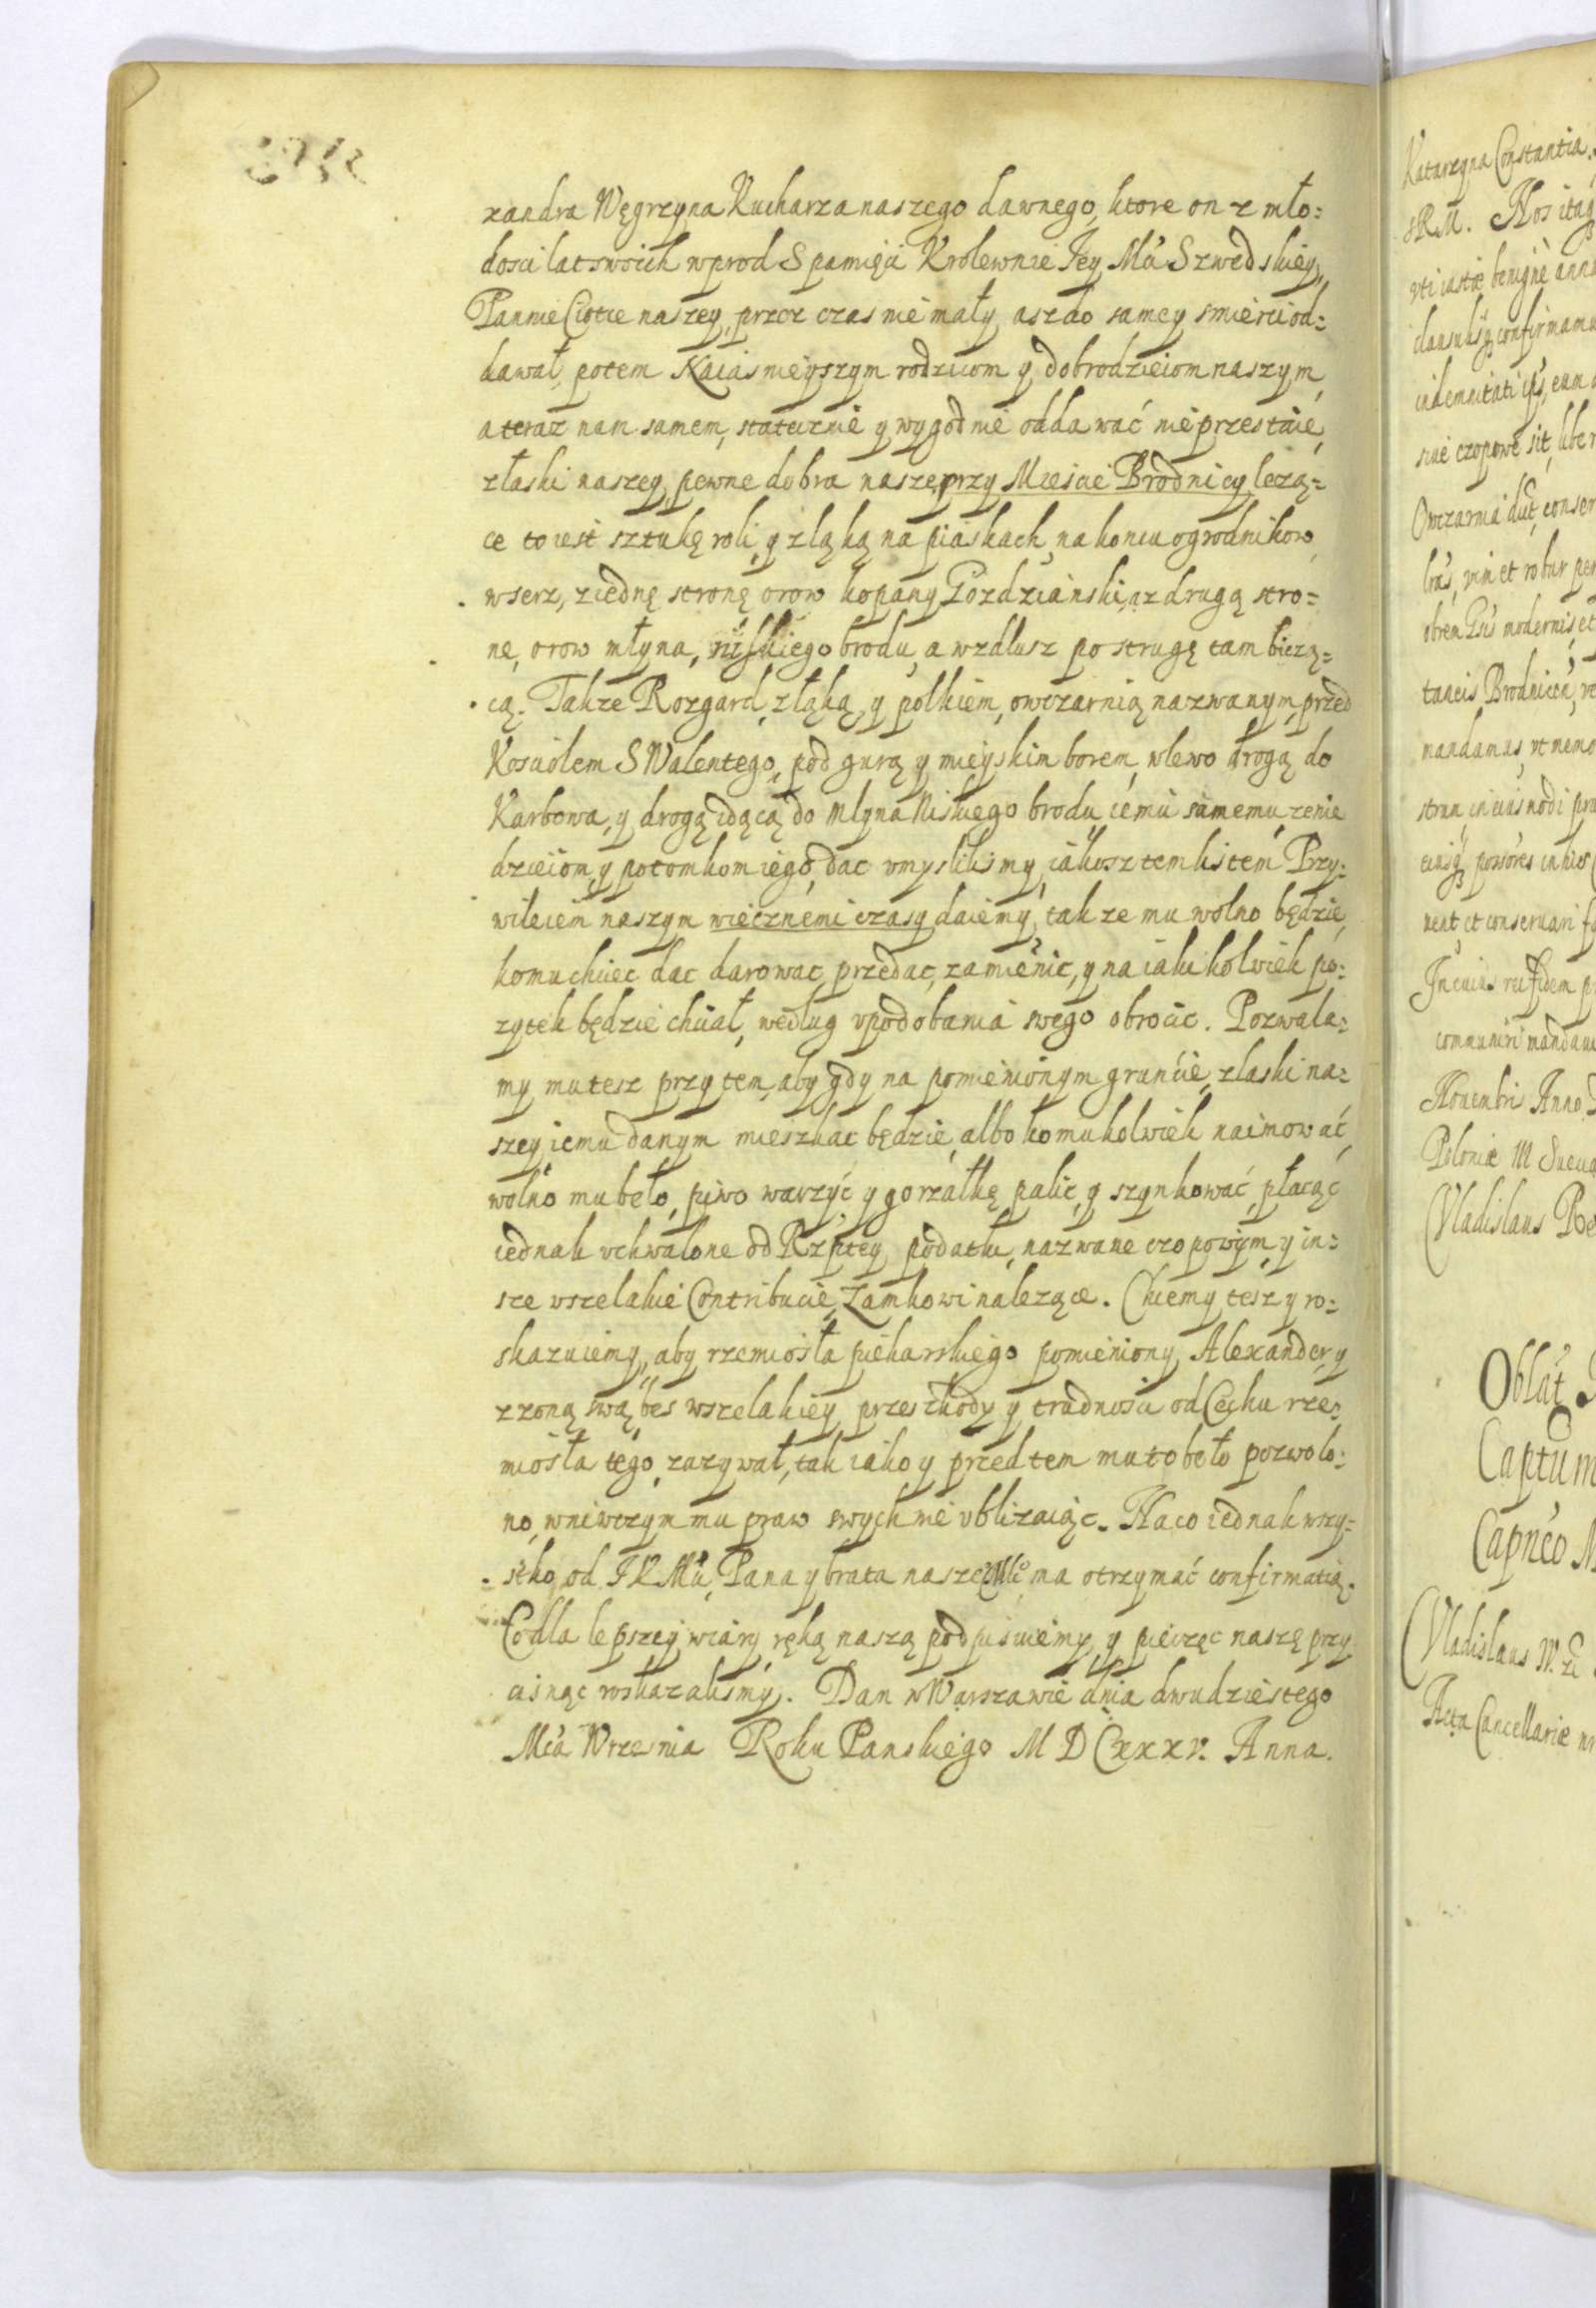 xandra Węgrzyna Kucharza naszego dawnego, ktore on z mło=
dosci lat swoich wprod S pamięci Krolewnie Jey Mći Szwedskiey,
Pannie Ciotce naszey, przez czas nie mały asz do samey smierci od=
dawał, potem Naiasnieyszym rodzicom y dobrodzieiom naszym,
a teraz nam samem, statecznie y wygodnie oddawać nie przestaie,
złaski naszey, pewne dobra nasze przy Miescie Brodnicy lezą=
ce to iest sztukę roli, y z łąką na piaskach, na koncu ogrodnikow
wserz, z iednę stronę orow kopany Gozdzianski, a z drugą stro=
nę, orow młyna, niskiego brodu, a wzdlusz po strugę tam biezą=
cą. Takze Rozgard, złąką, y polkiem, owczarnią nazwanym, przed
Kosciołem S Walentego, pod gurą y mieyskim borem, wlewo drogą do
Karbowa, y drogą idącą do Mlyna Niskiego brodu, iemu samemu, zenie
dzieiom, y potomkom iego, dac umyslilismy, iakosz tem listem Przy=
wileiem naszym wiecznemi czasy daiemy, tak ze mu wolno będzie,
komu chciec dac darowac, przedac, zamienic, y na iaki kolwiek po=
zytek będzie chciał, według upodobania swego obrocic. Pozwala=
my mu tesz przy tem, aby gdy na pomienionym gruncie, zlaski na=
szey iemu danym mieszkac będzie, albo komukolwiek naimować,
wolno mu beło, piwo warzyć y gorzałkę palic, y szynkować, płacąc
iednak uchwalone od Rzptey podatki, nazwane czopowym, y in=
sze wszelakie Contribucie, Zamkowi nalezące. Chcemy tesz y ro=
skazuiemy, aby rzemiosła piekarskiego pomieniony Alexander, y
z zoną swą, bes wszelakiey przeszkody y trudnosci od Cechu rze=
miosła tego, zazywał, tak iako y przedtem mu to beło pozwolo=
no, wniwczym mu praw swych nie ublizaiąc. Na co iednak wszy=
stko, od JKMći, Pana y brata naszego Mło ma otrzymać confirmatią.
Co dla lepszey wiary ręką naszą podpisuiemy, y pieczęc naszę przy
cisnąc roskazalismy. Dan w Warszawie dnia dwudziestego
Mca Wrzesnia Roku Panskiego M D Cxxxv. Anna.
Katarzyna Constantia
SRM. Nos itaq
uti iustæ benignè annu
confirmamu
indemnitati
czopowe sit, liber
Owczarnia dict, conser
vim et robur per
modernis, et
Brodnicen, re
mandamus, ut nemo
nent et conservari
In cuius rei fidem p
communiri mandavi
Novembri Anno D
Poloniæ III Sueciæ
Vladislaus Re
Oblat
Captum
Vladislaus IV.
Acta Cancellariæ